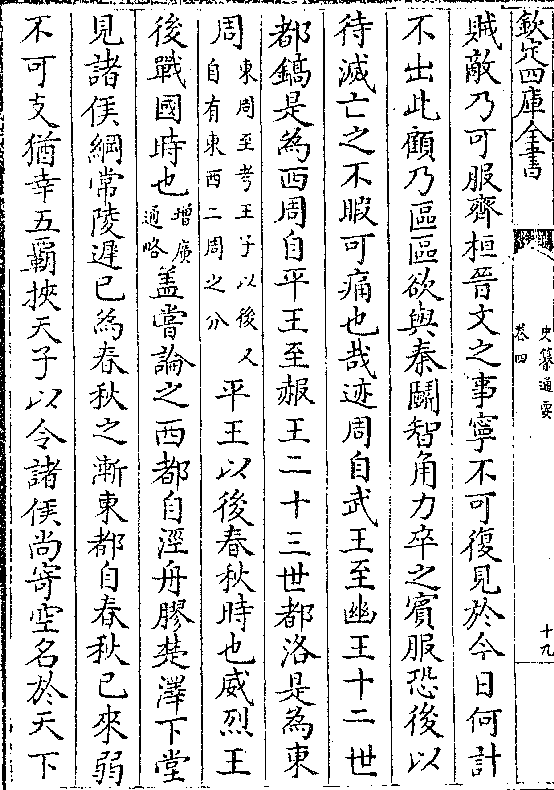 欽定四庫全書
史纂通要
卷四
十九
賊敵乃可服齊桓晉文之事寧不可復見於今日何計
不出此顧乃區區欲與秦鬬智角力卒之賓服恐後以
待滅亡之不暇可痛也哉迹周自武王至幽王十二世
都鎬是為西周自平王至赧王二十三世都洛是為東
周東周至考王子以後又自有東西二周之分平王以後春秋時也威烈王
後戰國時也增廣通略盖嘗論之西都自涇舟膠楚澤下堂
見諸侯綱常陵遲已為春秋之漸東都自春秋已來弱
不可支猶幸五霸挾天子以令諸侯尚寄空名於天下